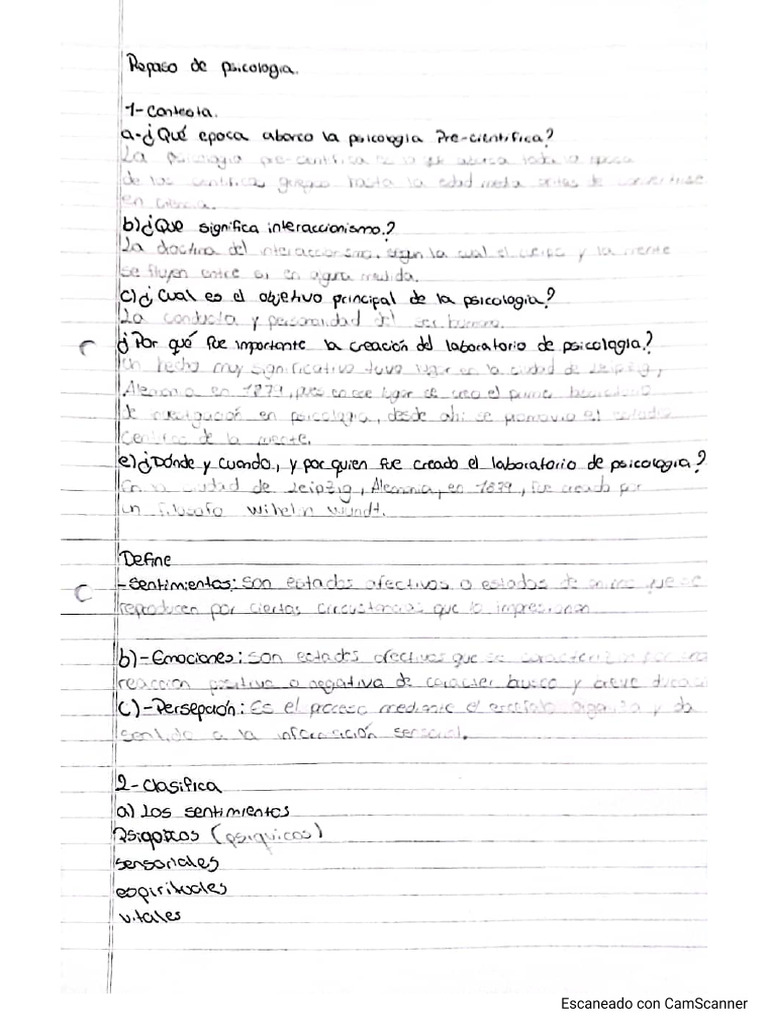 Repaso de psicologia.
1- Contesta.
a-¿Qué epoca abarco la psicologia Pre-cientifica?
La psicologia pre-cientifica es la que abarca toda la epoca
de los cientificos griegos hasta la edad media antes de convertirse
en ciencia.
b)¿Que significa interaccionismo.?
La doctrina del interaccionismo. según la cual el cuerpo y la mente
se fluyen entre si en alguna medida.
c)¿Cual es el objetivo principal de la psicologia?
La conducta y personalidad del ser humano.
¿Por qué fue importante la creación del laboratorio de psicologia.?
Un hecho muy significativo tuvo lugar en la ciudad de Leipzig,
Alemania en 1879, pues en ese lugar se creo el primer laboratorio
de investigación en psicologia, desde ahi se promovio el estudio
cientifico de la mente.
e)¿Dónde y cuando, y por quien fue creado el laboratorio de psicologia?
En la ciudad de Leipzig, Alemania, en 1879, fue creado por
un filosofo Wilhelm Wundt.
Define
-Sentimientos: Son estados afectivos o estados de animo que se
reproducen por ciertas circustancias que lo impresionan
b)-Emociones: Son estados afectivos que se caracterizan por una
reacción positiva o negativa de caracter busco y breve
C)-Persepción: Es el proceso mediante el organiza y da
sentido a la información sensorial.
2- Clasifica
a) Los sentimientos
(psiquicos)
sensoriales
espirituales
vitales
Escaneado con CamScanner